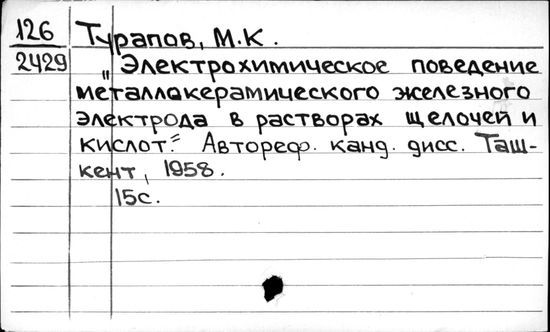 126 Турапов, М.К.
2429 „Электрохимическое поведение
металлокерамического железного
электрода в растворах щелочей и
кислот." Автореф. канд. дисс. Таш-
кент, 1958.
15с.